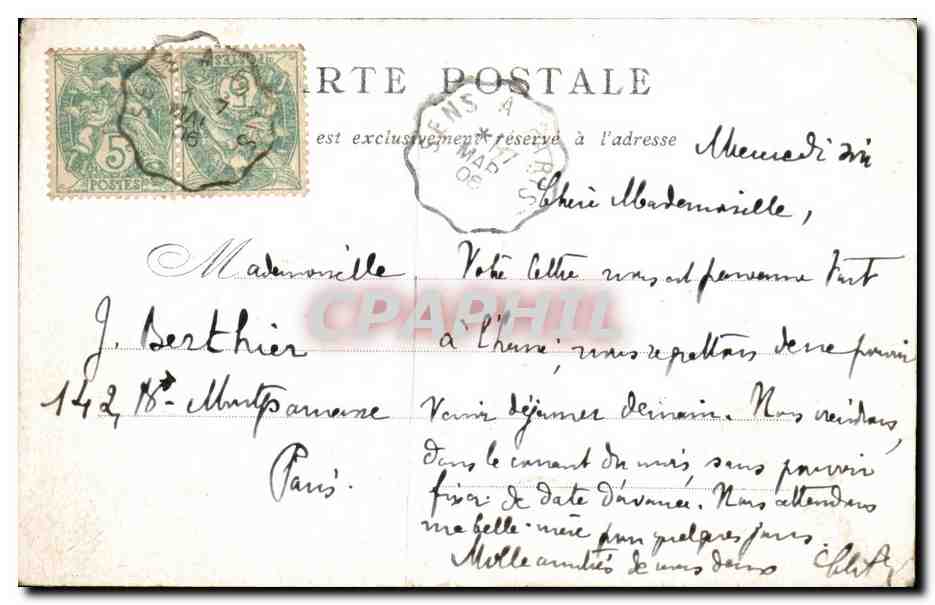 CARTE POSTALE
est exclusivement réservé à l'adresse
5
POSTES
SENS A
7
MAI
06
CPAPHIL
Mademoiselle
J. Berthier
142, Bd Montparnasse
Paris.
Mercredi soir
Chère Mademoiselle,
Votre lettre nous est parvenue tard
à l'heure, nous regrettons de ne pouvoir
venir déjeuner demain. Nous viendrons,
dans le courant du mois, sans pouvoir
fixer de date d'avance. Nous attendons
ma belle-mère pour quelques jours.
Mille amitiés de nous deux